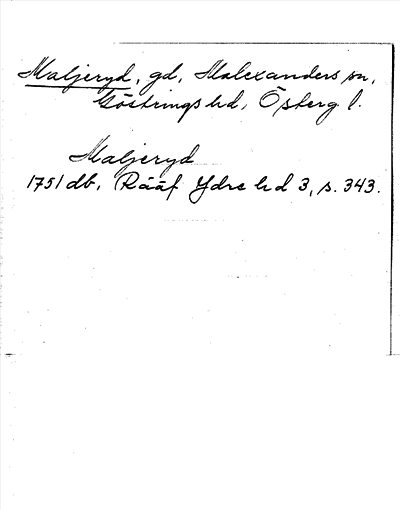 Maljeryd, gd, Malexanders sn,
Göstrings hd, Östergl.
Maljeryd
1751 db, Rääf Ydre hd 3, s. 343.